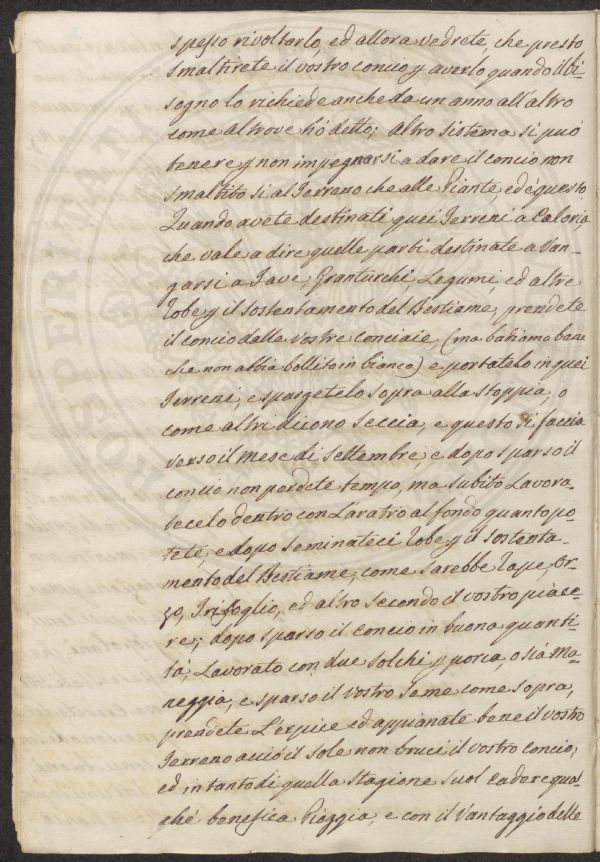 spesso rivoltarlo, ed allora vedrete, che presto
smaltirete il vostro concio, p averlo quando il bi-
sogno lo richiede anche da un anno all'altro
come altrove hò detto; Altro sistema si può
tenere p non impegnarsi a dare il concio non
smaltito si al Terreno che alle Piante, ed è questo
Quando avete destinati quei Terreni a Caloria,
che vale a dire quelle parti destinate a Van-
garsi a Fave, Granturchi, Legumi, ed altre
robe p il sostentamento del Bestiame, prendete
il concio delle vostre conciaie, (ma badiamo bene
che non abbia bollito in bianco) e portatelo in quei
Terreni, e spargetelo sopra alla stoppia, o
come altri dicono seccia, e questo si faccia
verso il mese di settembre, e dopo sparso il
concio non perdete tempo, ma subito Lavora-
tecelo dentro con L'aratro al fondo quanto po-
tete, e dopo seminateci robe p il sostenta-
mento del Bestiame, come sarebbe Rape, Or-
zo, Trifoglio, ed altro secondo il vostro piace-
re; dopo sparso il concio in buona quanti-
tà, Lavorato con due solchi p porca, o sia Ma-
neggia, e sparso il vostro seme come sopra,
prendete L'erpice ed appianate bene il vostro
Terreno acciò il sole non bruci il vostro concio;
ed in tanto di quella stagione suol cadere qua-
che benefica Pioggia, e con il Vantaggio delle
PROSPERITATI